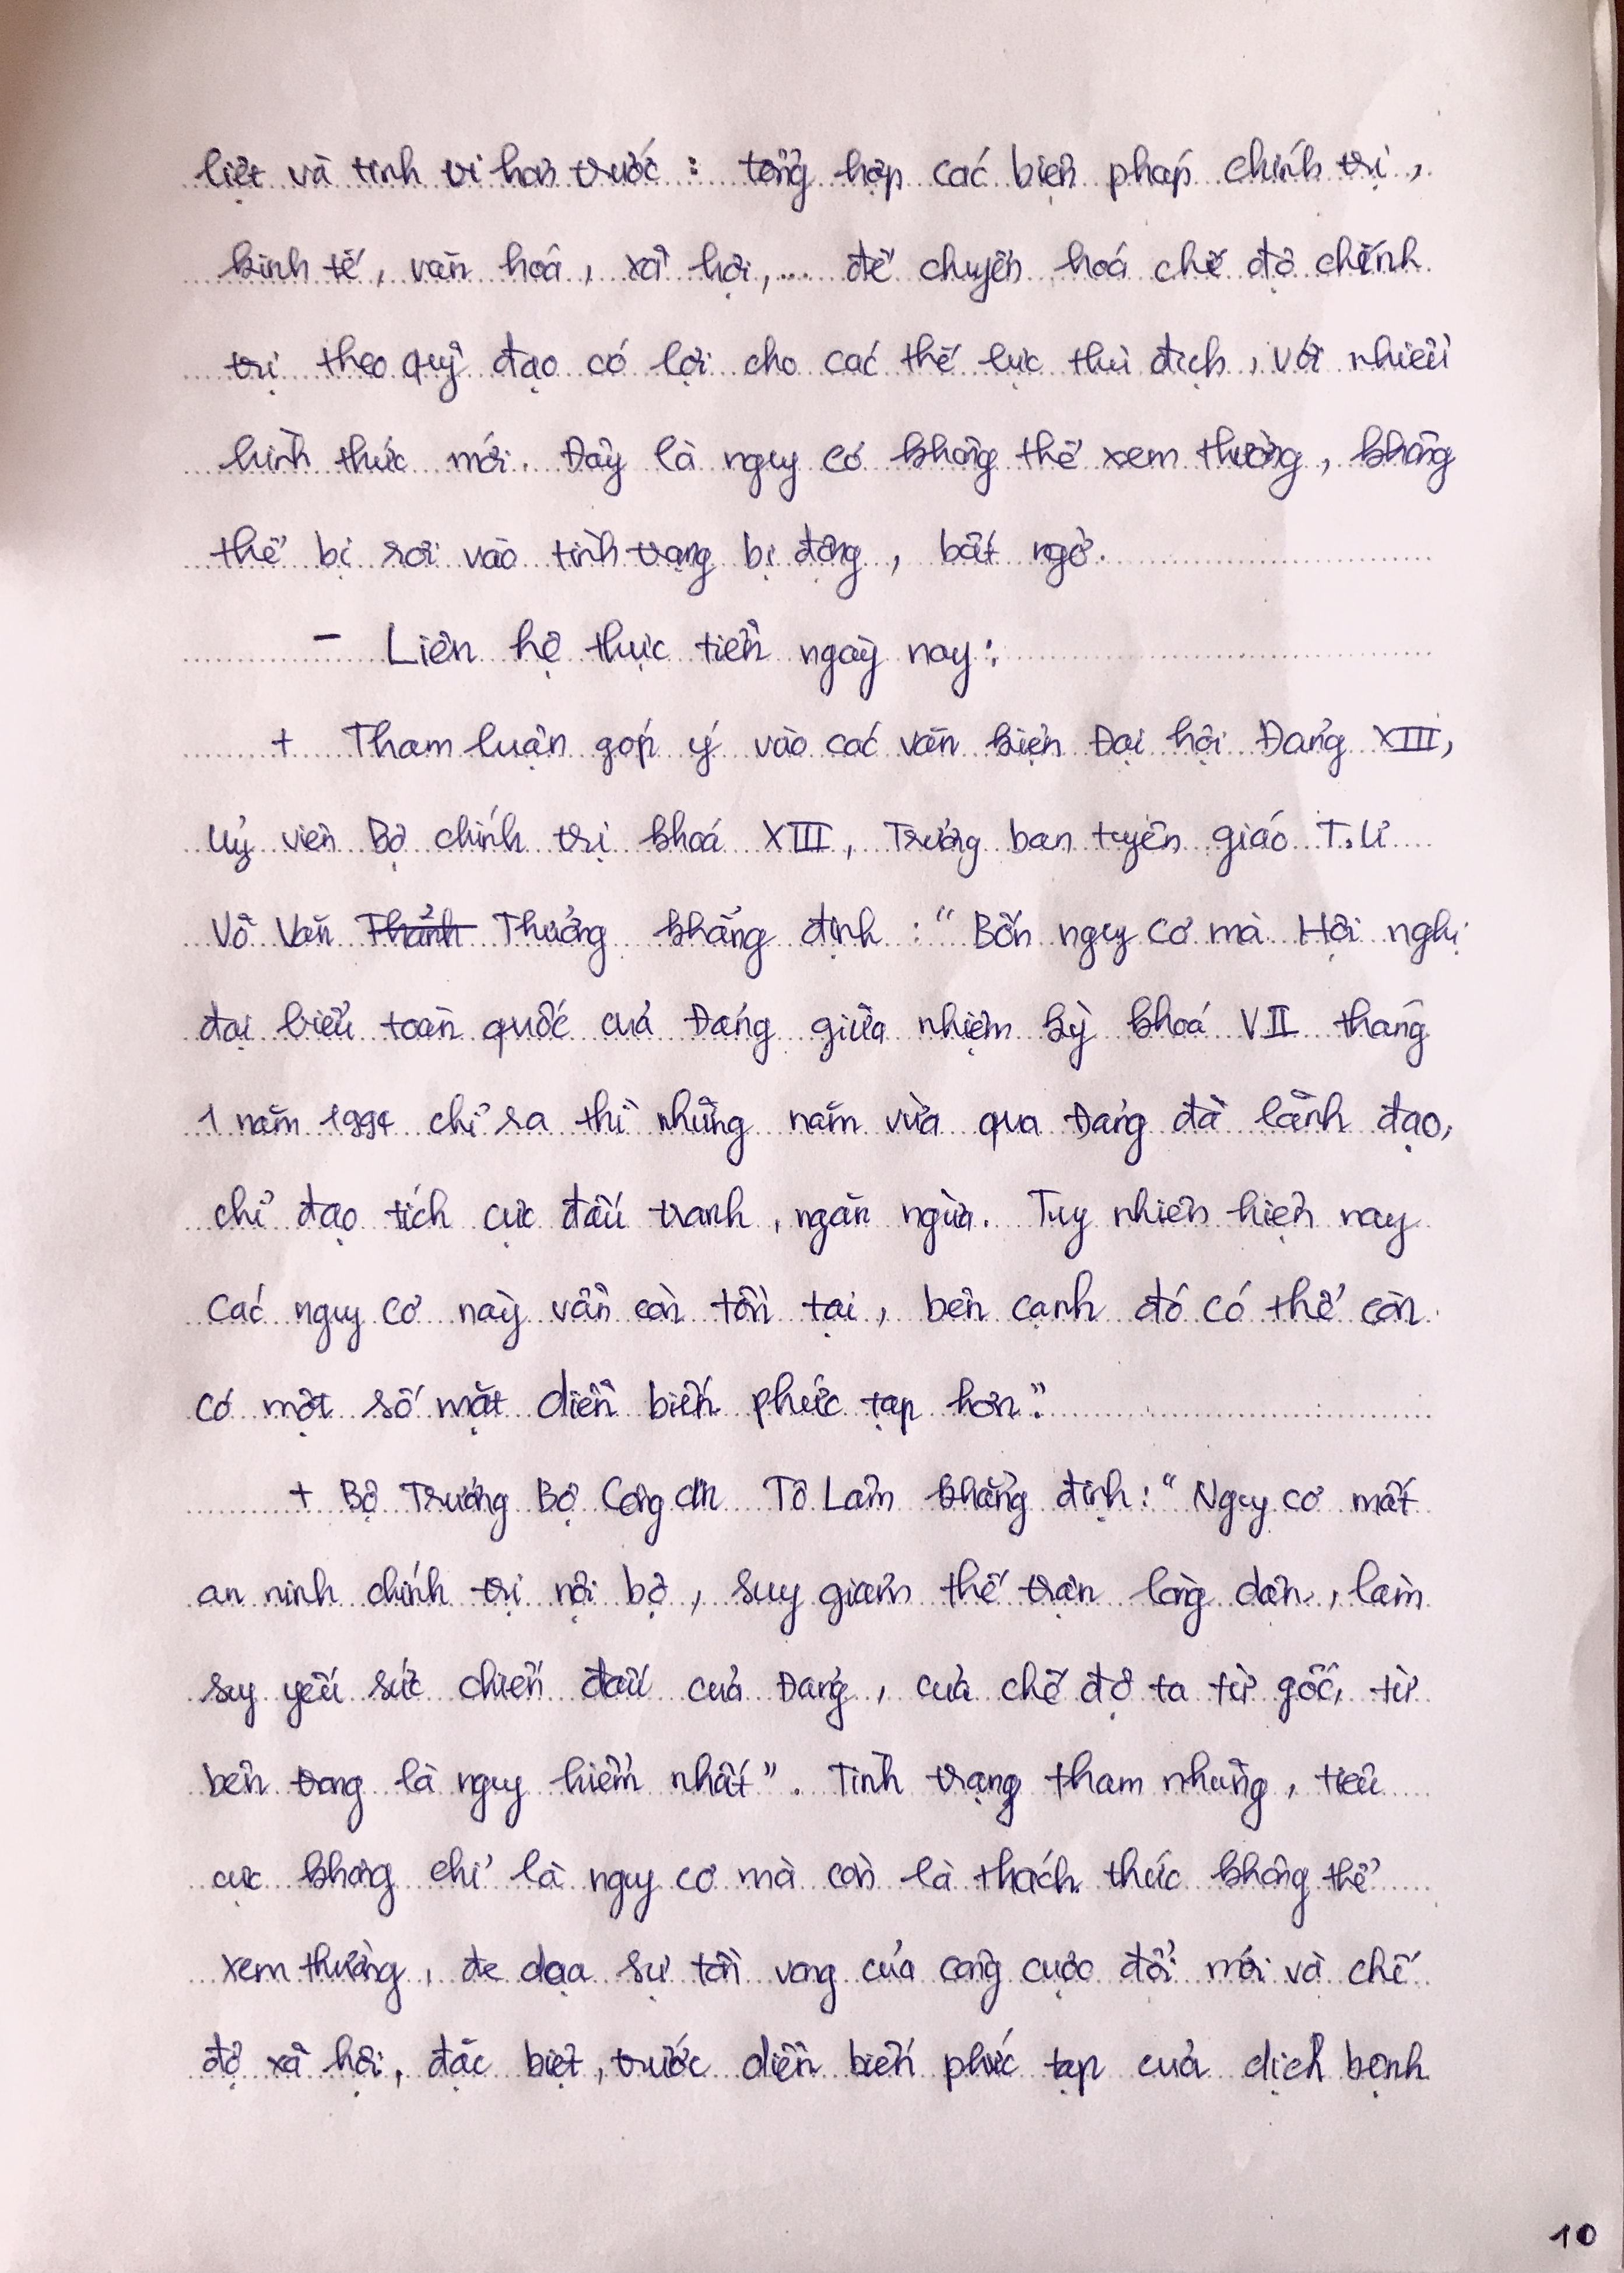 liệt và tinh vi hơn trước : tổng hợp các biện pháp chính trị,
kinh tế, văn hoá, xã hội,... để chuyển hoá chế độ chính
trị theo quỹ đạo có lợi cho các thế lực thù địch, với nhiều
hình thức mới. Đây là nguy cơ không thể xem thường, không
thể bị rơi vào tình trạng bị động, bất ngờ.
- Liên hệ thực tiễn ngày nay:
+ Tham luận góp ý vào các văn kiện Đại hội Đảng XIII,
Uỷ viên Bộ chính trị khoá XIII, Trưởng ban tuyên giáo T.Ư
Võ Văn Thảnh Thưởng khẳng định : " Bốn nguy cơ mà Hội nghị
đại biểu toàn quốc của Đảng giữa nhiệm kỳ khoá VII tháng
1 năm 1994 chỉ ra thì những năm vừa qua Đảng đã lãnh đạo,
chỉ đạo tích cực đấu tranh, ngăn ngừa. Tuy nhiên hiện nay
các nguy cơ này vẫn còn tồn tại, bên cạnh đó có thể còn
có một số mặt diễn biến phức tạp hơn."
+ Bộ Trưởng Bộ Công an Tô Lâm khẳng định : " Nguy cơ mất
an ninh chính trị nội bộ, suy giảm thế trận lòng dân, làm
suy yếu sức chiến đấu của Đảng, của chế độ ta từ gốc, từ
bên trong là nguy hiểm nhất ". Tình trạng tham nhũng, tiêu
cực không chỉ là nguy cơ mà còn là thách thức không thể
xem thường, đe dọa sự tồn vong của công cuộc đổi mới và chế
độ xã hội, đặc biệt, trước diễn biến phức tạp của dịch bệnh
10